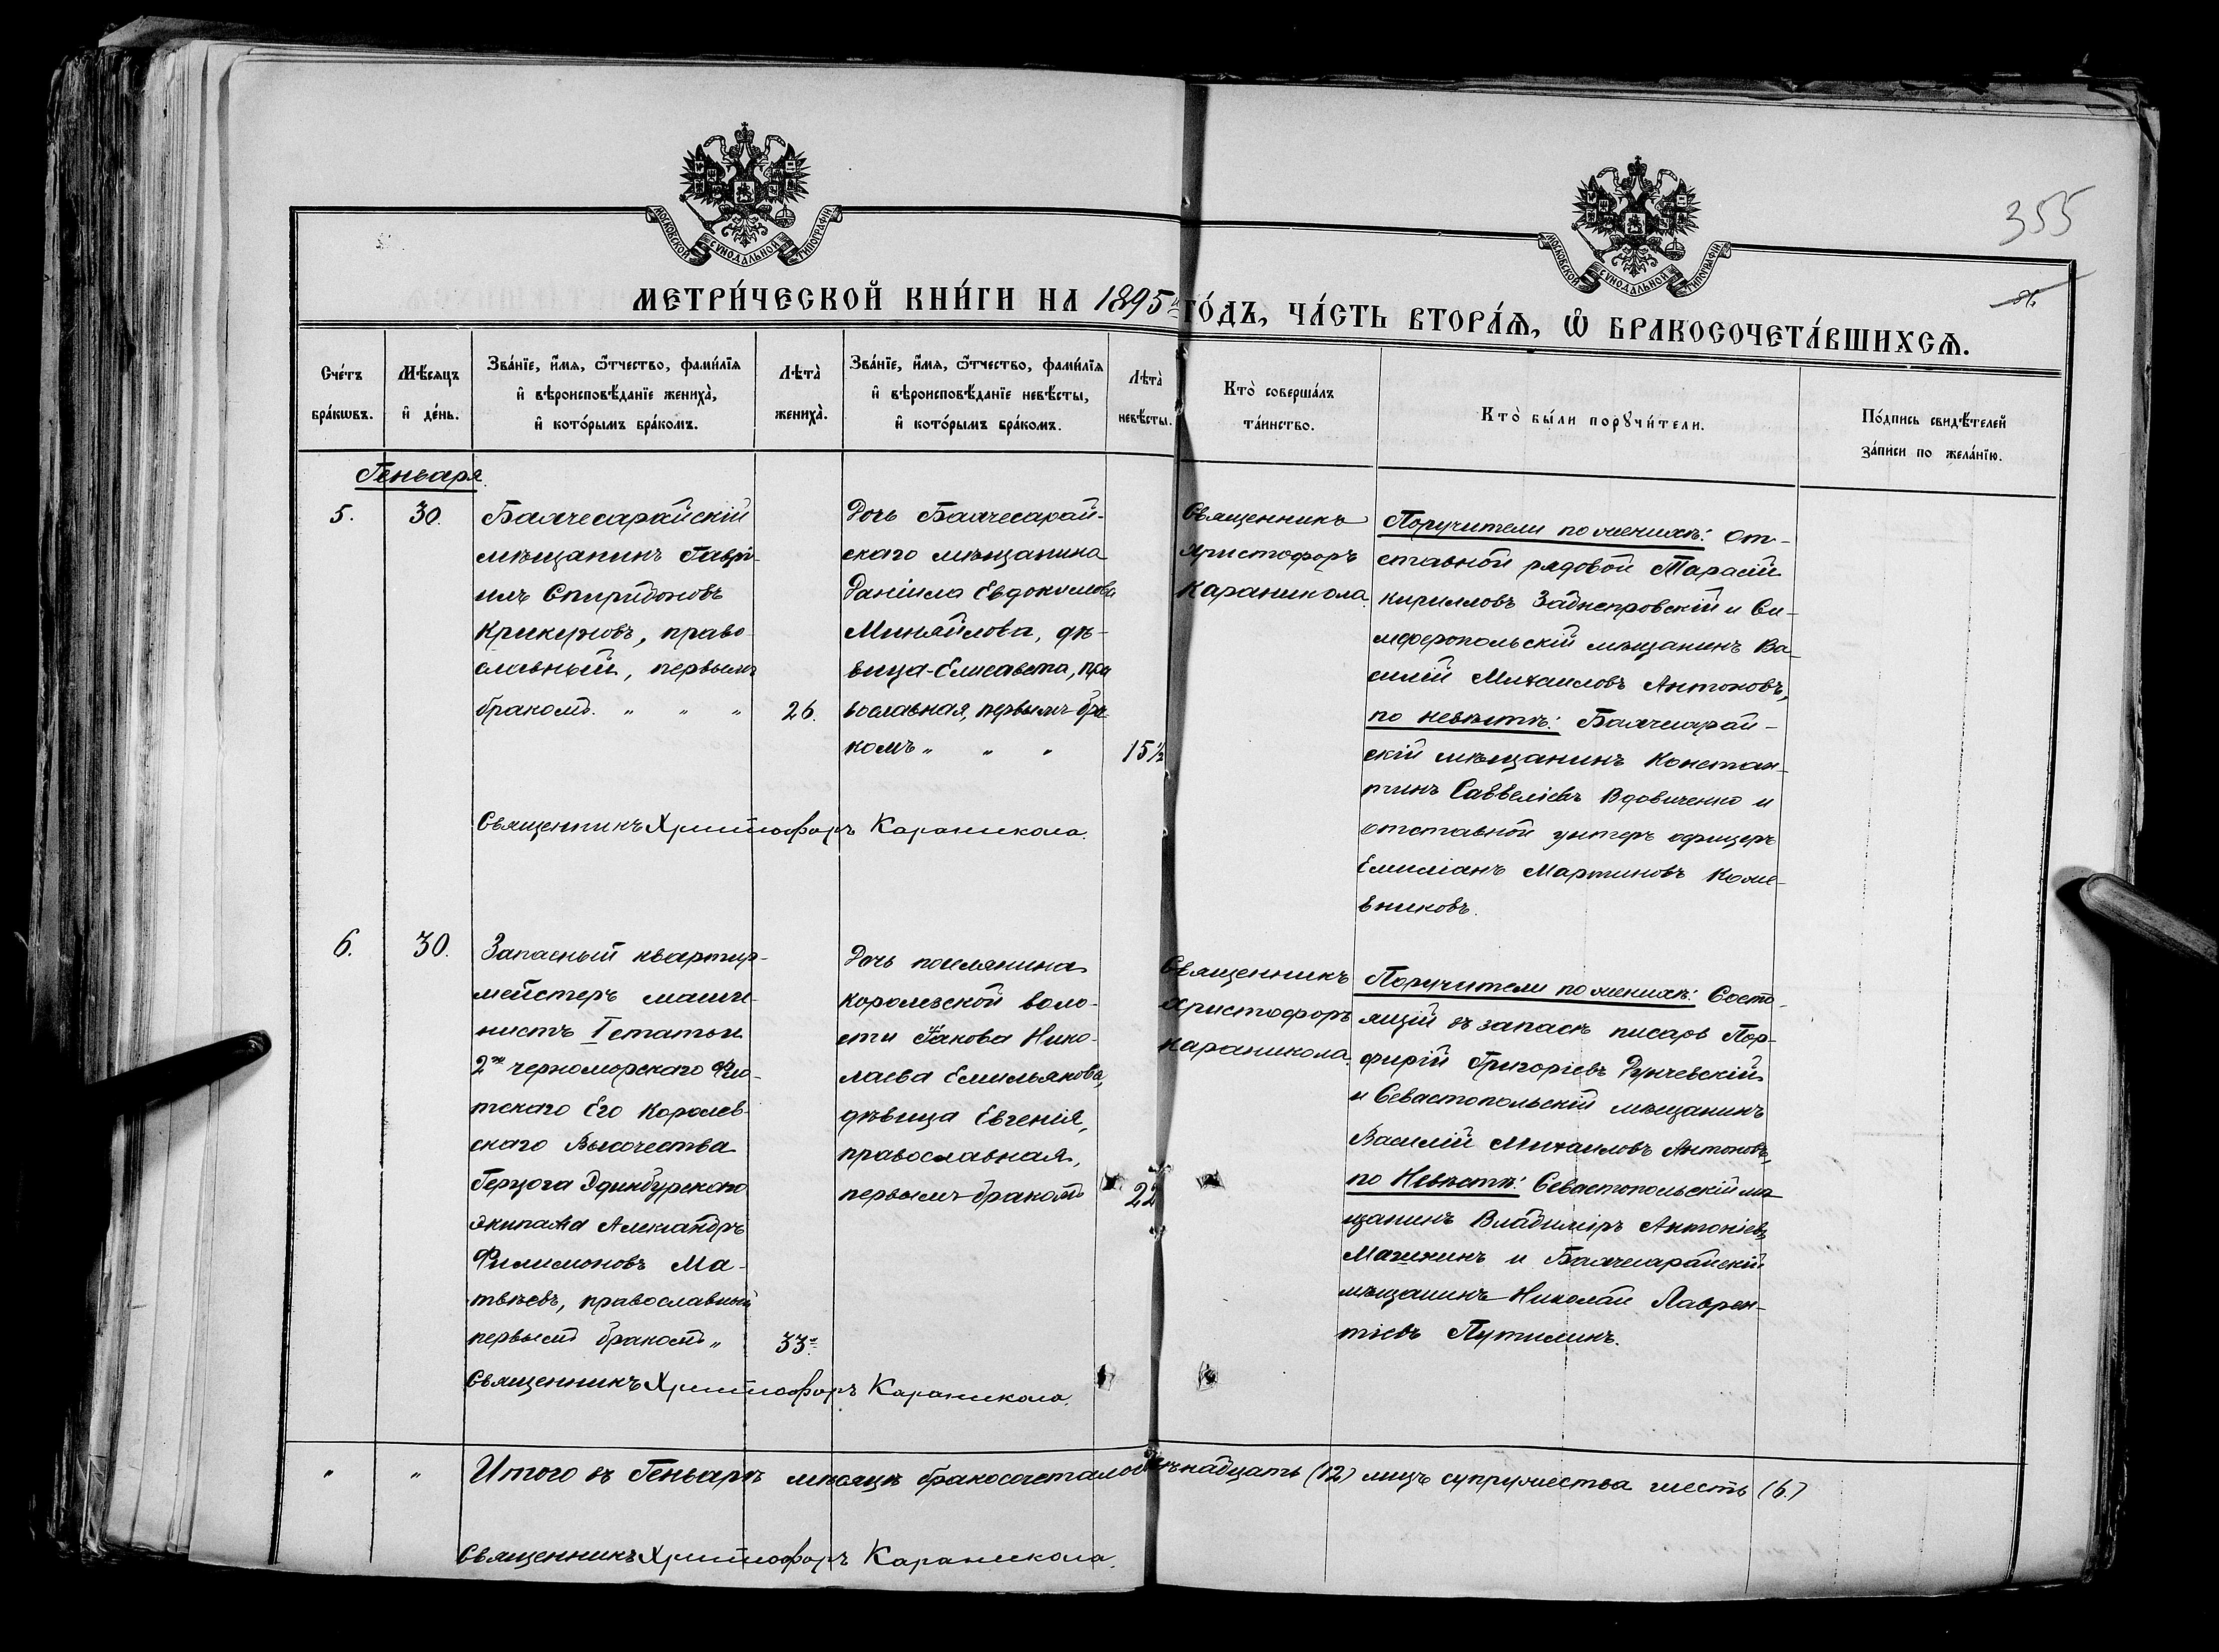 МОСКОВСКОЙ СУНОДАЛЬНОЙ ТИПОГРАФІИ
МОСКОВСКОЙ СУНОДАЛЬНОЙ ТИПОГРАФІИ
355
МЕТРИ́ЧЕСКОЙ КНИ́ГИ НА 1895й ГО́ДЪ, ЧА́СТЬ ВТОРА́Ѧ, Ѿ БРАКОСОЧЕТА́ВШИХСѦ.
Сче́тъ
бра́кѡвъ.
Мѣ́сяцъ
и҆ де́нь.
Зва́нїе, и҆́мѧ, ѻ҆́тчество, фами́лїѧ
и҆ вѣроисповѣ́данїе жениха̀,
и҆ кото́рымъ бра́комъ.
Лѣта̀
жениха̀.
Зва́нїе, и҆́мѧ, ѻ҆́тчество, фами́лїѧ
и҆ вѣроисповѣ́данїе невѣ́сты,
и҆ кото́рымъ бра́комъ.
Лѣта̀
невѣ́сты.
Кто̀ соверша́лъ
та́инство.
Кто̀ бы́ли порꙋчи́тели.
По́дпись свидѣ́телей
за́писи по жела́нїю.
Геньваря.
5.
30.
Бахчесарайскій
мѣщанинъ Гаврі-
илъ Спиридоновъ
, право-
славный, первымъ
бракомъ. „ „ „
26.
Дочь Бахчесарай-
скаго мѣщанина
Даніила Евдокимова
Михайлова, дѣ-
вица Елисавета, пра
вославная, первымъ бра-
комъ „ „ „
15½
Священникъ
Христофоръ
Караникола.
Поручители по женихѣ: От-
ставной рядовой Тарасій
Кирилловъ Заднепровскій и Си-
мферопольскій мѣщанинъ Ва-
силій Михаиловъ Антоновъ,
по невѣстѣ: Бахчесарай-
скій мѣщанинъ Констан-
тинъ Савельевъ Вдовиченко и
отставной унтеръ офицеръ
Емиліанъ Мартиновъ
вниковъ.
Священникъ Христофоръ Караникола.
6.
30.
Запасный квартир-
мейстеръ маши-
нистъ I статьи
2го черноморскаго Фло-
тскаго Его Королев-
скаго Высочества
Герцога Эдинбургскаго
экипажа Александръ
Филимоновъ Ма-
твѣевъ, православный
первымъ бракомъ „
33.
Дочь поселянина
королевской воло-
сти Іакова Нико-
лаева Емильянова,
дѣвица Евгенія,
православная,
первымъ бракомъ
22
Священникъ
Христофоръ
Караникола.
Поручители по женихѣ: Состо-
ящій въ запасѣ писарь Пор-
фирій Григоріевъ Дунчевскій
и Севастопольскій мѣщанинъ
Василій Михаиловъ Антоновъ,
по Невѣстѣ: Севастопольскій мѣ-
щанинъ Владиміръ Антоніевъ
Машнинъ и Бахчесарайскій
мѣщанинъ Николай Лаврен-
тіевъ Путилинъ.
Священникъ Христофоръ Караникола.
„ „ Итого въ Геньварѣ мѣсяцѣ бракосочеталось двѣнадцать (12) лицъ супружества шесть (6.)
Священникъ Христофоръ Караникола.